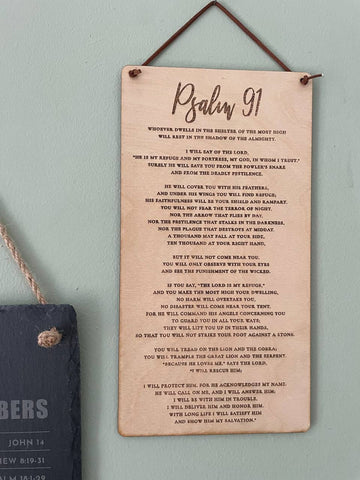 Psalm 91
WHOEVER DWELLS IN THE SHELTER OF THE MOST HIGH
WILL REST IN THE SHADOW OF THE ALMIGHTY.
I WILL SAY OF THE LORD,
"HE IS MY REFUGE AND MY FORTRESS, MY GOD, IN WHOM I TRUST."
SURELY HE WILL SAVE YOU FROM THE FOWLER'S SNARE
AND FROM THE DEADLY PESTILENCE.
HE WILL COVER YOU WITH HIS FEATHERS,
AND UNDER HIS WINGS YOU WILL FIND REFUGE;
HIS FAITHFULNESS WILL BE YOUR SHIELD AND RAMPART.
YOU WILL NOT FEAR THE TERROR OF NIGHT,
NOR THE ARROW THAT FLIES BY DAY,
NOR THE PESTILENCE THAT STALKS IN THE DARKNESS,
NOR THE PLAGUE THAT DESTROYS AT MIDDAY.
A THOUSAND MAY FALL AT YOUR SIDE,
TEN THOUSAND AT YOUR RIGHT HAND,
BUT IT WILL NOT COME NEAR YOU.
YOU WILL ONLY OBSERVE WITH YOUR EYES
AND SEE THE PUNISHMENT OF THE WICKED.
IF YOU SAY, "THE LORD IS MY REFUGE,"
AND YOU MAKE THE MOST HIGH YOUR DWELLING,
NO HARM WILL OVERTAKE YOU,
NO DISASTER WILL COME NEAR YOUR TENT.
FOR HE WILL COMMAND HIS ANGELS CONCERNING YOU
TO GUARD YOU IN ALL YOUR WAYS;
THEY WILL LIFT YOU UP IN THEIR HANDS,
SO THAT YOU WILL NOT STRIKE YOUR FOOT AGAINST A STONE.
YOU WILL TREAD ON THE LION AND THE COBRA;
YOU WILL TRAMPLE THE GREAT LION AND THE SERPENT.
"BECAUSE HE LOVES ME," SAYS THE LORD,
"I WILL RESCUE HIM;
I WILL PROTECT HIM, FOR HE ACKNOWLEDGES MY NAME.
HE WILL CALL ON ME, AND I WILL ANSWER HIM;
I WILL BE WITH HIM IN TROUBLE,
I WILL DELIVER HIM AND HONOR HIM.
WITH LONG LIFE I WILL SATISFY HIM
AND SHOW HIM MY SALVATION."
BERS
JOHN 14
EW 8:19-31
LM 18:1-29